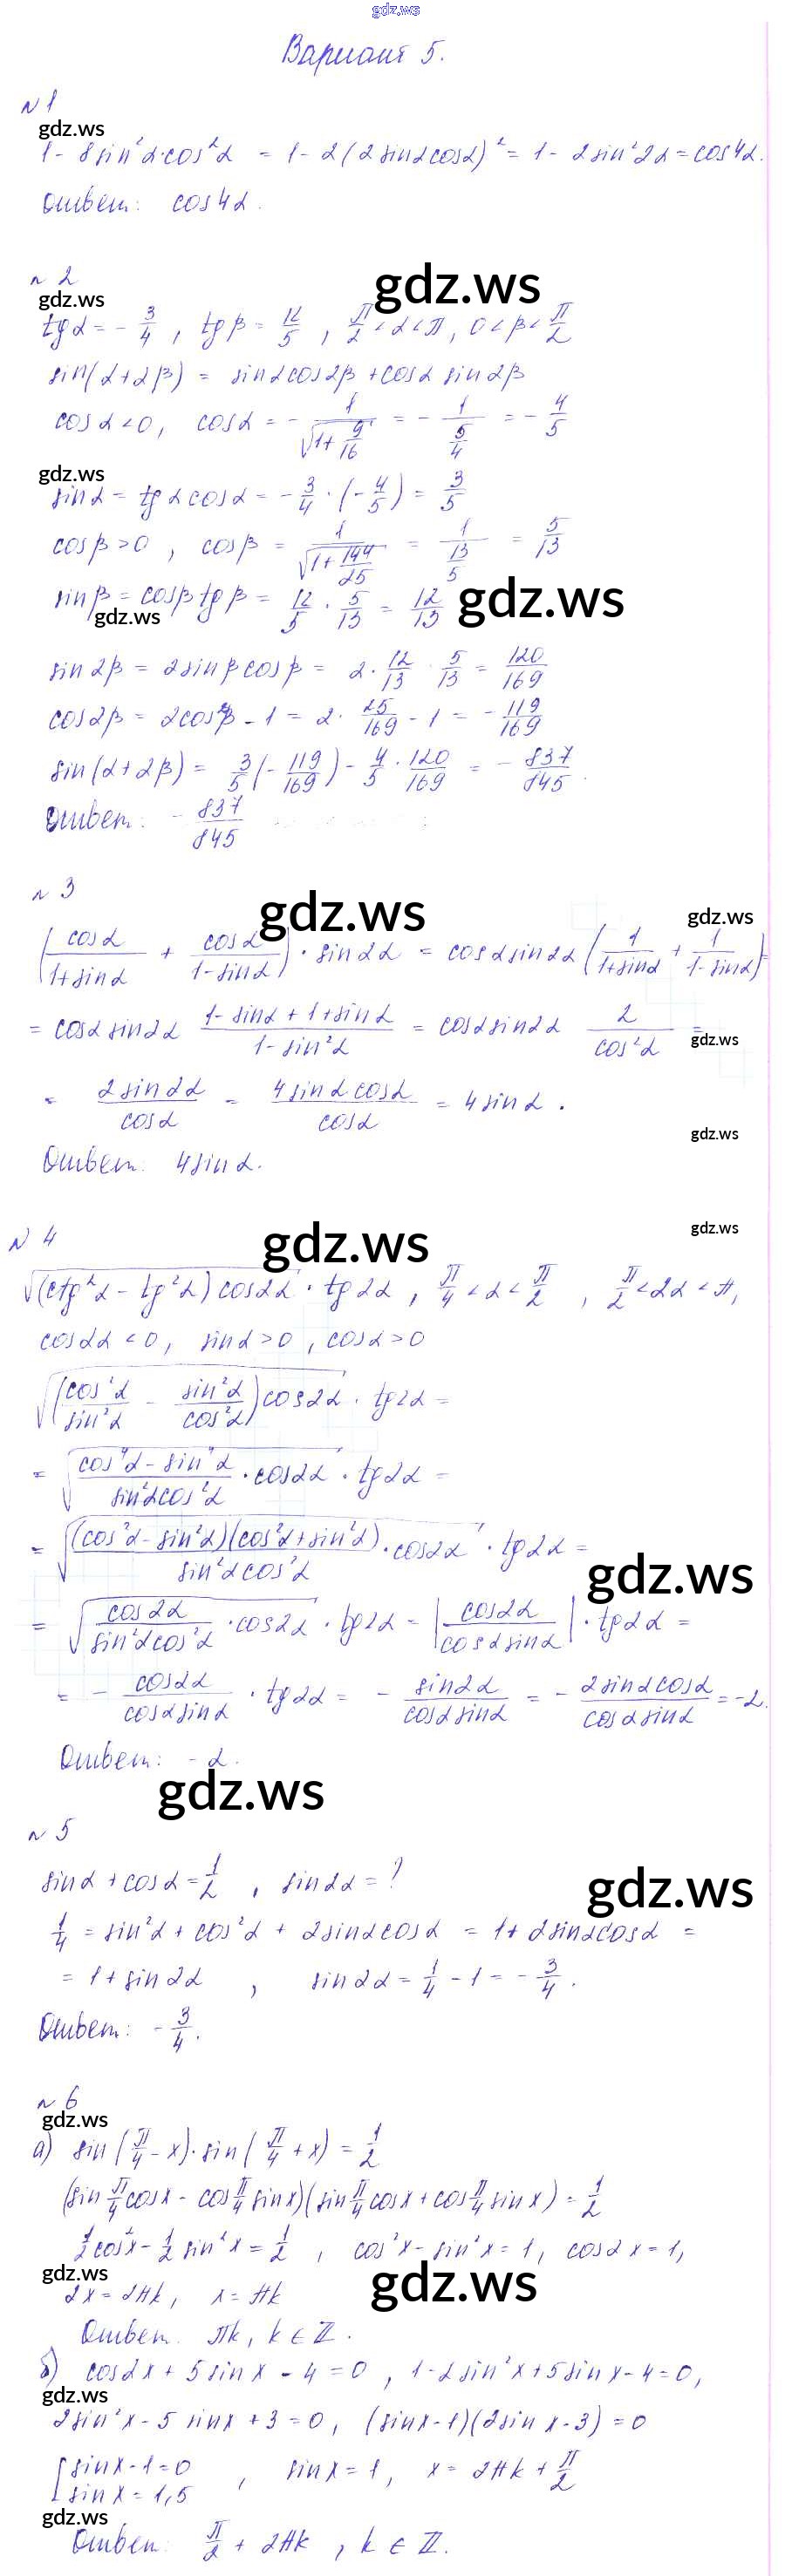 gdz.ws
Вариант 5.
№ 1
gdz.ws
1 - 8sin²α·cos²α = 1 - 2(2sinαcosα)² = 1 - 2sin²2α = cos4α.
Ответ: cos4α.
№ 2
gdz.ws
gdz.ws
tgα = -3/4, tgβ = 12/5, π/2 < α < π, 0 < β < π/2
sin(α+2β) = sinαcos2β + cosα sin2β
cosα < 0, cosα = -1/√(1+9/16) = -1/(5/4) = -4/5
gdz.ws
sinα = tgαcosα = -3/4·(-4/5) = 3/5
cosβ > 0, cosβ = 1/√(1+144/25) = 1/(13/5) = 5/13
sinβ = cosβtgβ = 12/5·5/13 = 12/13
gdz.ws
gdz.ws
sin2β = 2sinβcosβ = 2·12/13·5/13 = 120/169
cos2β = 2cos²β - 1 = 2·25/169 - 1 = -119/169
sin(α+2β) = 3/5(-119/169) - 4/5·120/169 = -837/845.
Ответ: -837/845
№ 3
gdz.ws
gdz.ws
(cosα/(1+sinα) + cosα/(1-sinα))·sin2α = cosαsin2α(1/(1+sinα) + 1/(1-sinα)) =
= cosαsin2α (1-sinα+1+sinα)/(1-sin²α) = cosαsin2α 2/cos²α =
gdz.ws
= 2sin2α/cosα = 4sinαcosα/cosα = 4sinα.
gdz.ws
Ответ: 4sinα.
№ 4
gdz.ws
gdz.ws
√((ctg²α - tg²α)cos2α)·tg2α, π/4 < α < π/2, π/2 < 2α < π,
cos2α < 0, sinα > 0, cosα > 0
√((cos²α/sin²α - sin²α/cos²α)cos2α)·tg2α =
= √((cos⁴α - sin⁴α)/(sin²αcos²α)·cos2α)·tg2α =
= √((cos²α - sin²α)(cos²α + sin²α)/(sin²αcos²α)·cos2α)·tg2α =
gdz.ws
= √(cos2α/(sin²αcos²α)·cos2α)·tg2α = |cos2α/(cosαsinα)|·tg2α =
= -cos2α/(cosαsinα)·tg2α = -sin2α/(cosαsinα) = -2sinαcosα/(cosαsinα) = -2.
Ответ: -2.
gdz.ws
№ 5
sinα + cosα = 1/2, sin2α = ?
gdz.ws
1/4 = sin²α + cos²α + 2sinαcosα = 1 + 2sinαcosα =
= 1 + sin2α, sin2α = 1/4 - 1 = -3/4.
Ответ: -3/4.
№ 6
gdz.ws
а) sin(π/4 - x)·sin(π/4 + x) = 1/2
(sin π/4 cosx - cos π/4 sinx)(sin π/4 cosx + cos π/4 sinx) = 1/2
1/2cos²x - 1/2 sin²x = 1/2, cos²x - sin²x = 1, cos2x = 1,
gdz.ws
gdz.ws
2x = 2πk, x = πk
Ответ: πk, k ∈ Z.
б) cos2x + 5sinx - 4 = 0, 1 - 2sin²x + 5sinx - 4 = 0,
gdz.ws
2sin²x - 5sinx + 3 = 0, (sinx-1)(2sinx-3) = 0
[sinx - 1 = 0
sinx = 1,5, sinx = 1, x = 2πk + π/2
gdz.ws
Ответ: π/2 + 2πk, k ∈ Z.